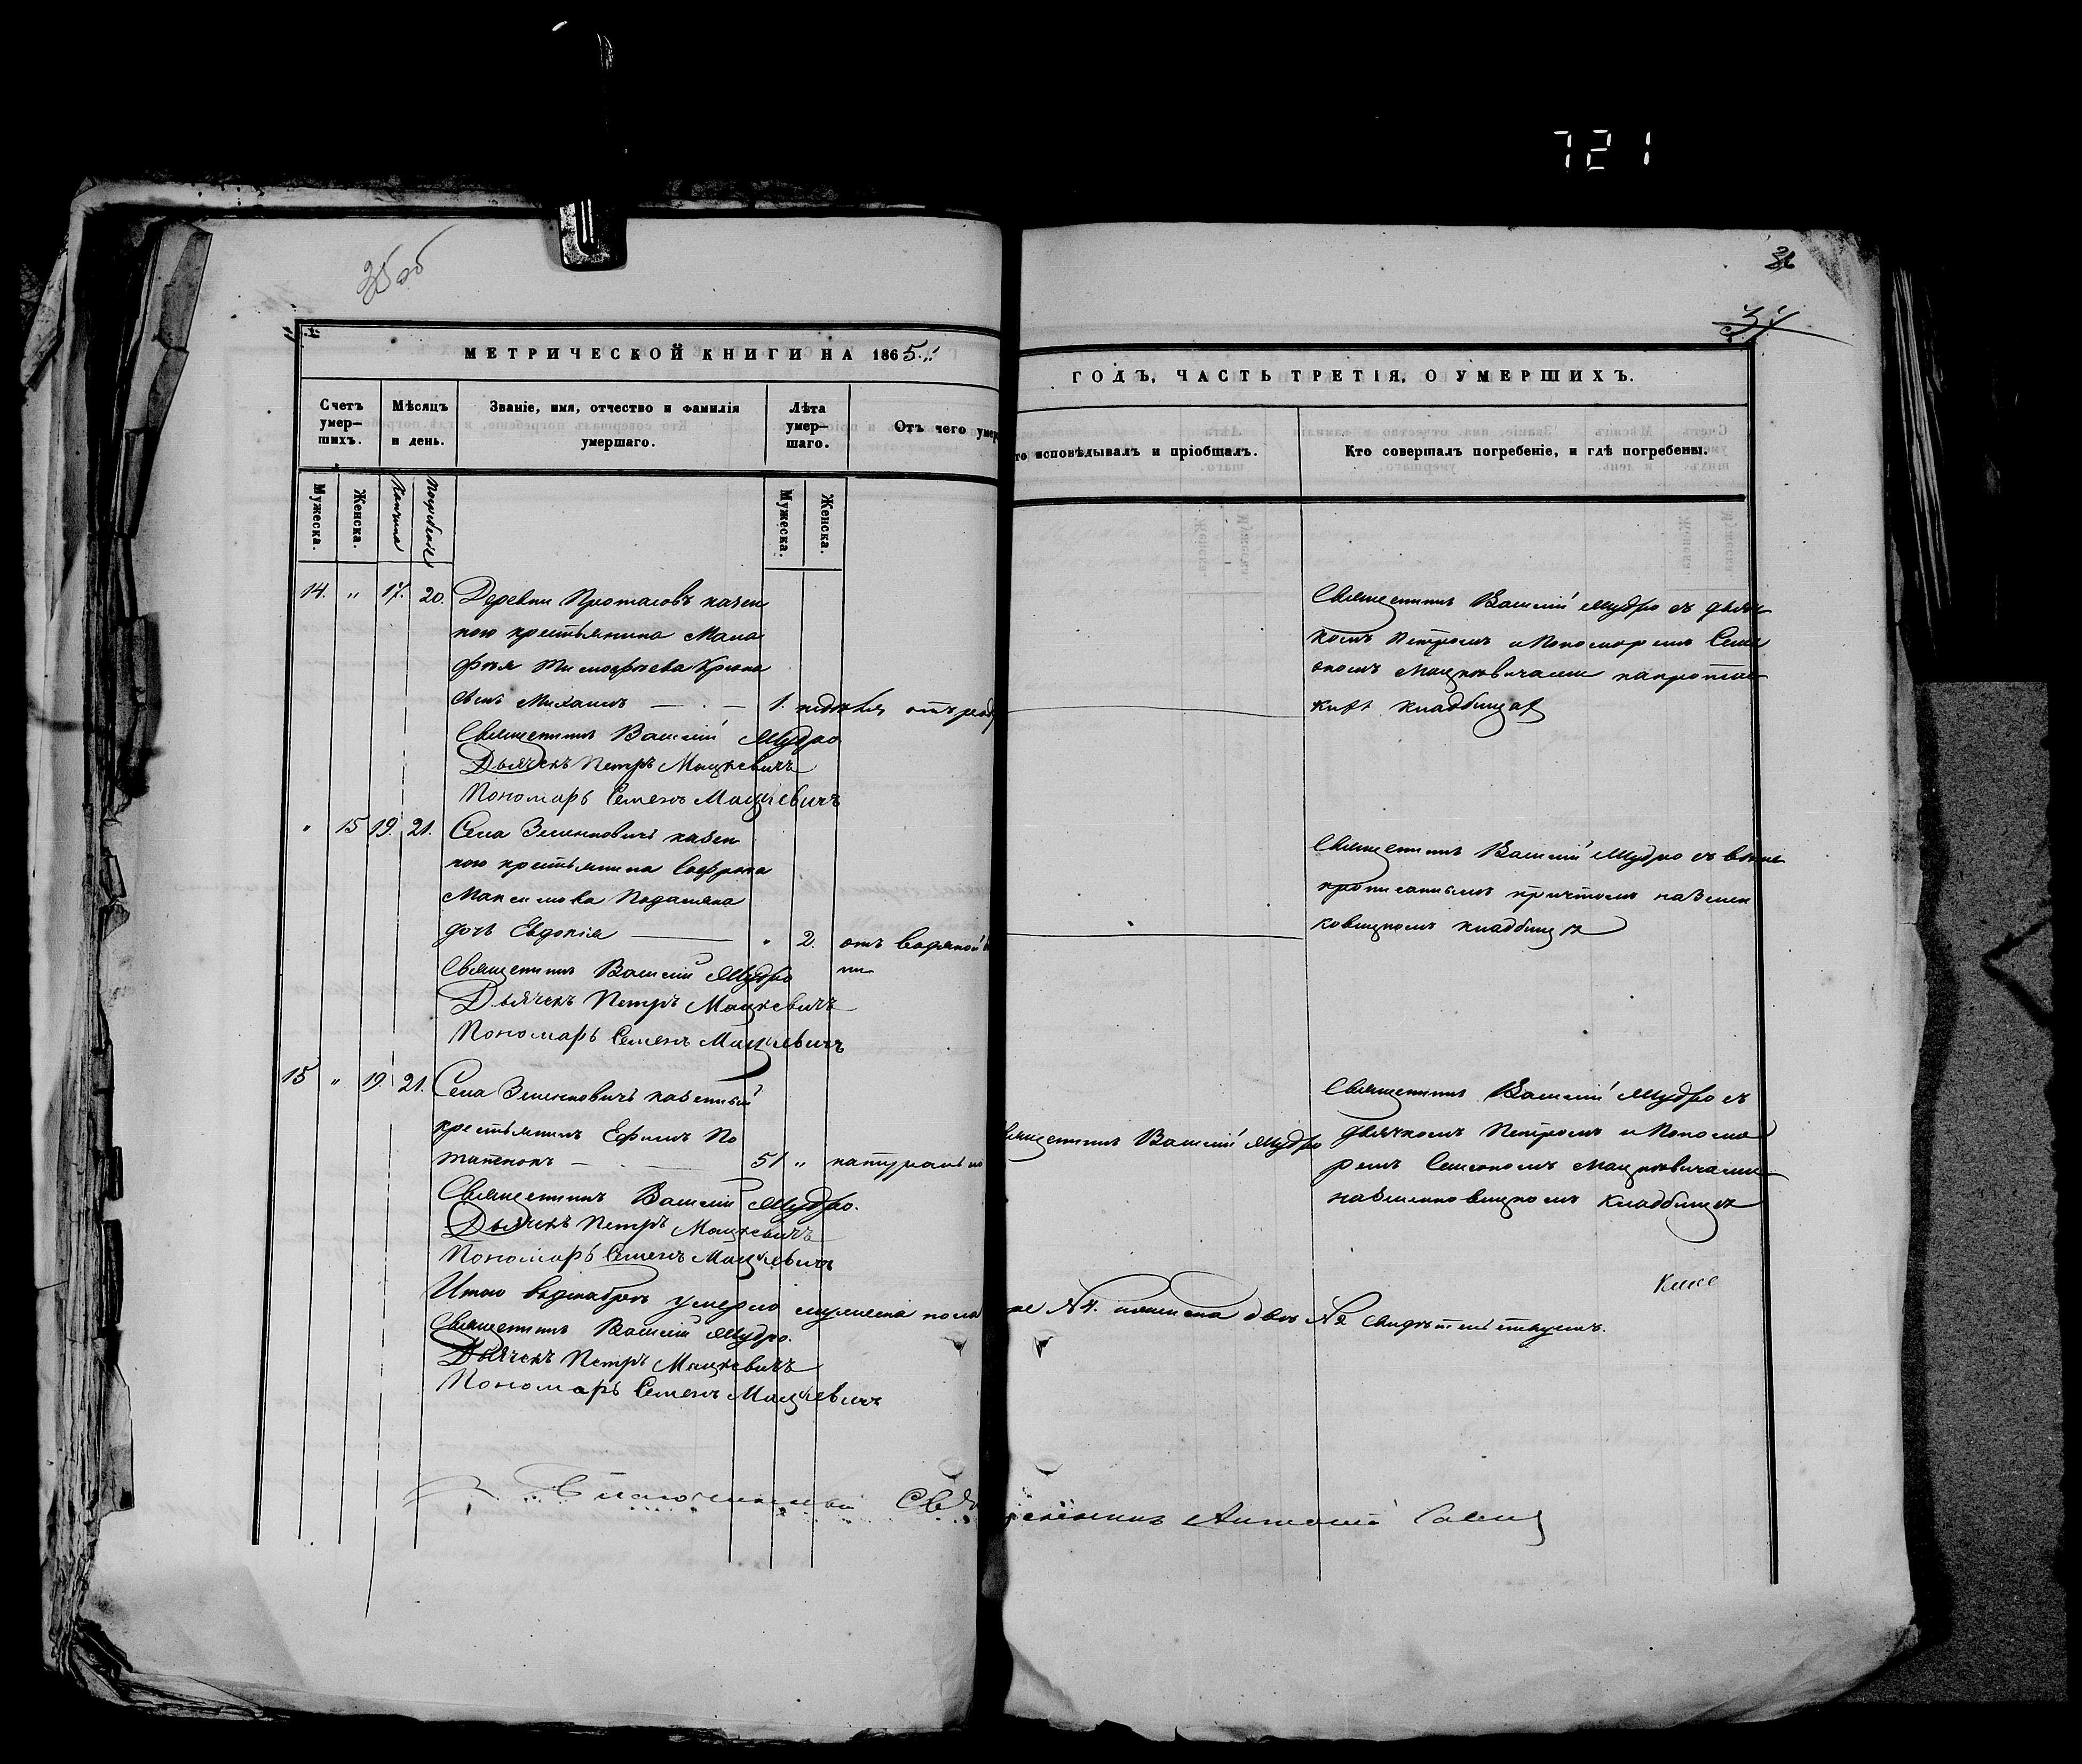 721
35об
36
37
МЕТРИЧЕСКОЙ КНИГИ НА 1865
ГОДЪ, ЧАСТЬ ТРЕТІЯ, О УМЕРШИХЪ.
Счетъ умер-шихъ.
Мѣсяцъ и день.
Званіе, имя, отчество и фамилія умершаго.
Лѣта умер-шаго.
Отъ чего умер
то исповѣдывалъ и пріобщалъ.
Кто совершалъ погребеніе, и гдѣ погребены.
Мужеска.
Женска.
Кончина
Погребен
Мужеска.
Женска.
14. " 17. 20. Деревни Протасовъ казен
ного крестьянина Мала
фѣя Тимофѣева Крюка
сынъ Михаилъ 1. недѣля отъ род
Священникъ Василій Мудро
Дьячекъ Петръ Мацкевичъ
Пономарь Семенъ Мацкевичъ
Священникъ Василій Мудро съ дьяч
комъ Петромъ и Пономаремъ Семе
ономъ Мацкевичами
кладбищѣ
" 15 19. 21. Села Зеленковичъ казен
ного крестьянина Софрона
Максимова
дочь Евдокія " 2. отъ водяной
Священникъ Василій Мудро
Дьячекъ Петръ Мацкевичъ
Пономарь Семенъ Мацкевичъ
Священникъ Василій Мудро съ выше
прописаннымъ причтомъ на Зелен
ковицкомъ кладбищѣ
15 " 19. 21. Села Зеленковичъ казенный
крестьянинъ Ефимъ По
тапенокъ 51 " натурально
Священникъ Василій Мудро.
Дьячекъ Петръ Мацкевичъ
Пономарь Семенъ Мацкевичъ
вященникъ Василій Мудро
Священникъ Василій Мудро съ
дьячкомъ Петромъ и Понома
ремъ Семеономъ Мацкевичами
на Зеленковицкомъ кладбищѣ
Итого въ декабрѣ умерло мужеска пола
№ 4. женска два № 2 свидѣтельствуемъ.
Священникъ Василій Мудро.
Дьячекъ Петръ Мацкевичъ
Пономарь Семенъ Мацкевичъ
Благочинный Священникъ Антоній